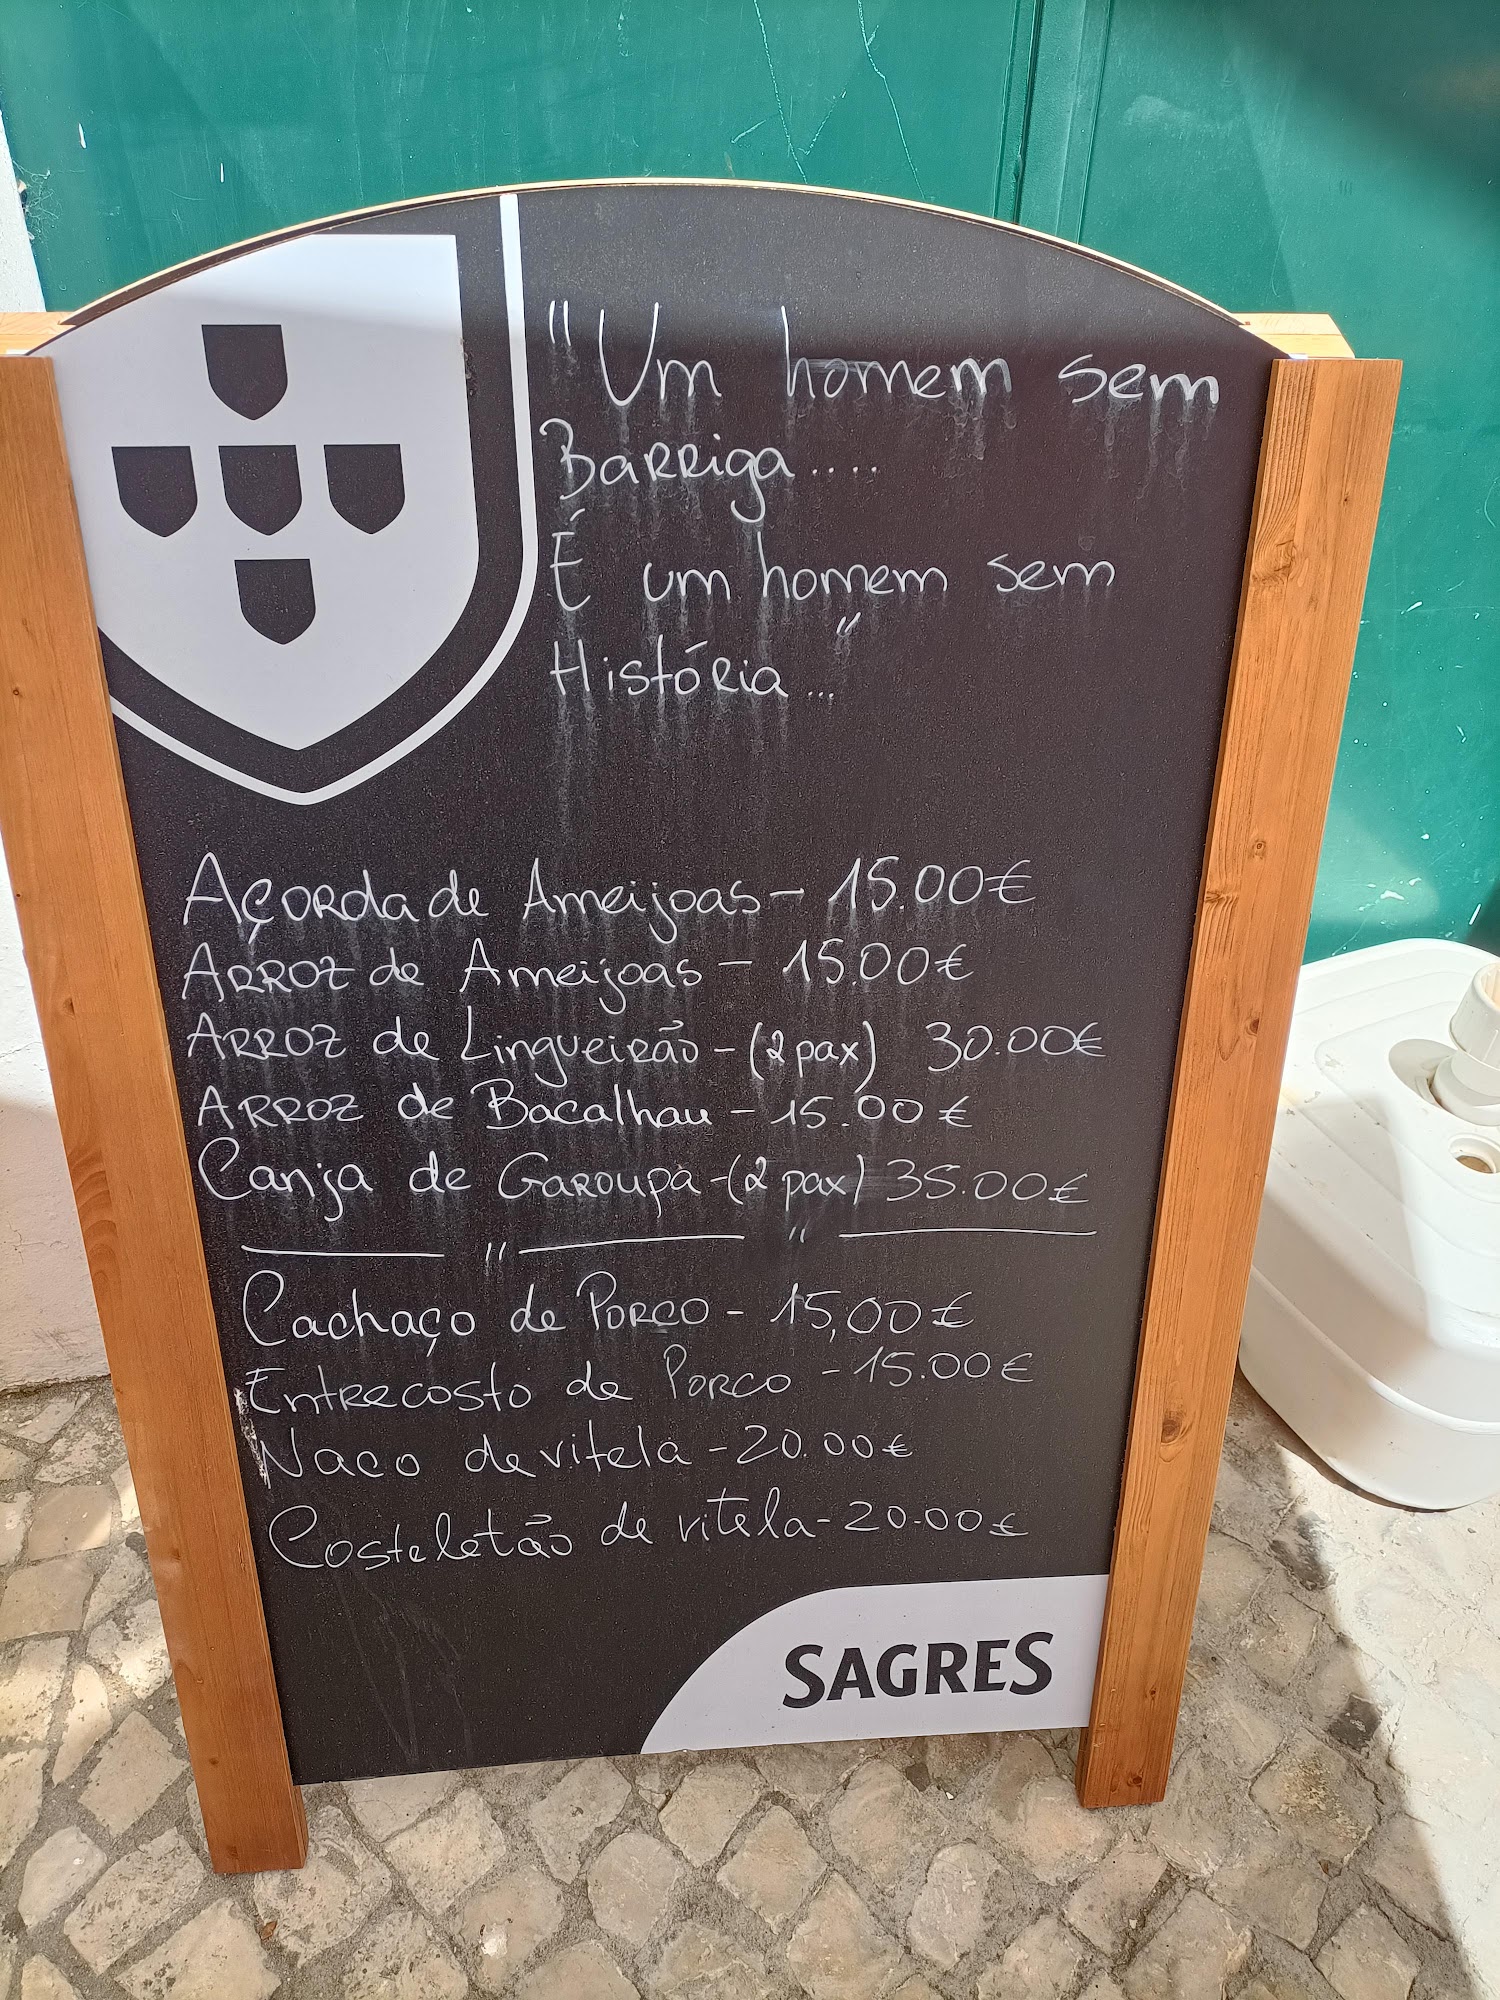 "Um homem sem
Barriga....
É um homem sem
História..."
Açorda de Ameijoas - 15.00€
Arroz de Ameijoas - 15.00€
Arroz de Lingueirão - (2 pax) 30.00€
Arroz de Bacalhau - 15.00€
Canja de Garoupa - (2 pax) 35.00€
Cachaço de Porco - 15,00€
Entrecosto de Porco - 15.00€
Naco de vitela - 20.00€
Costeletão de vitela - 20.00€
SAGRES